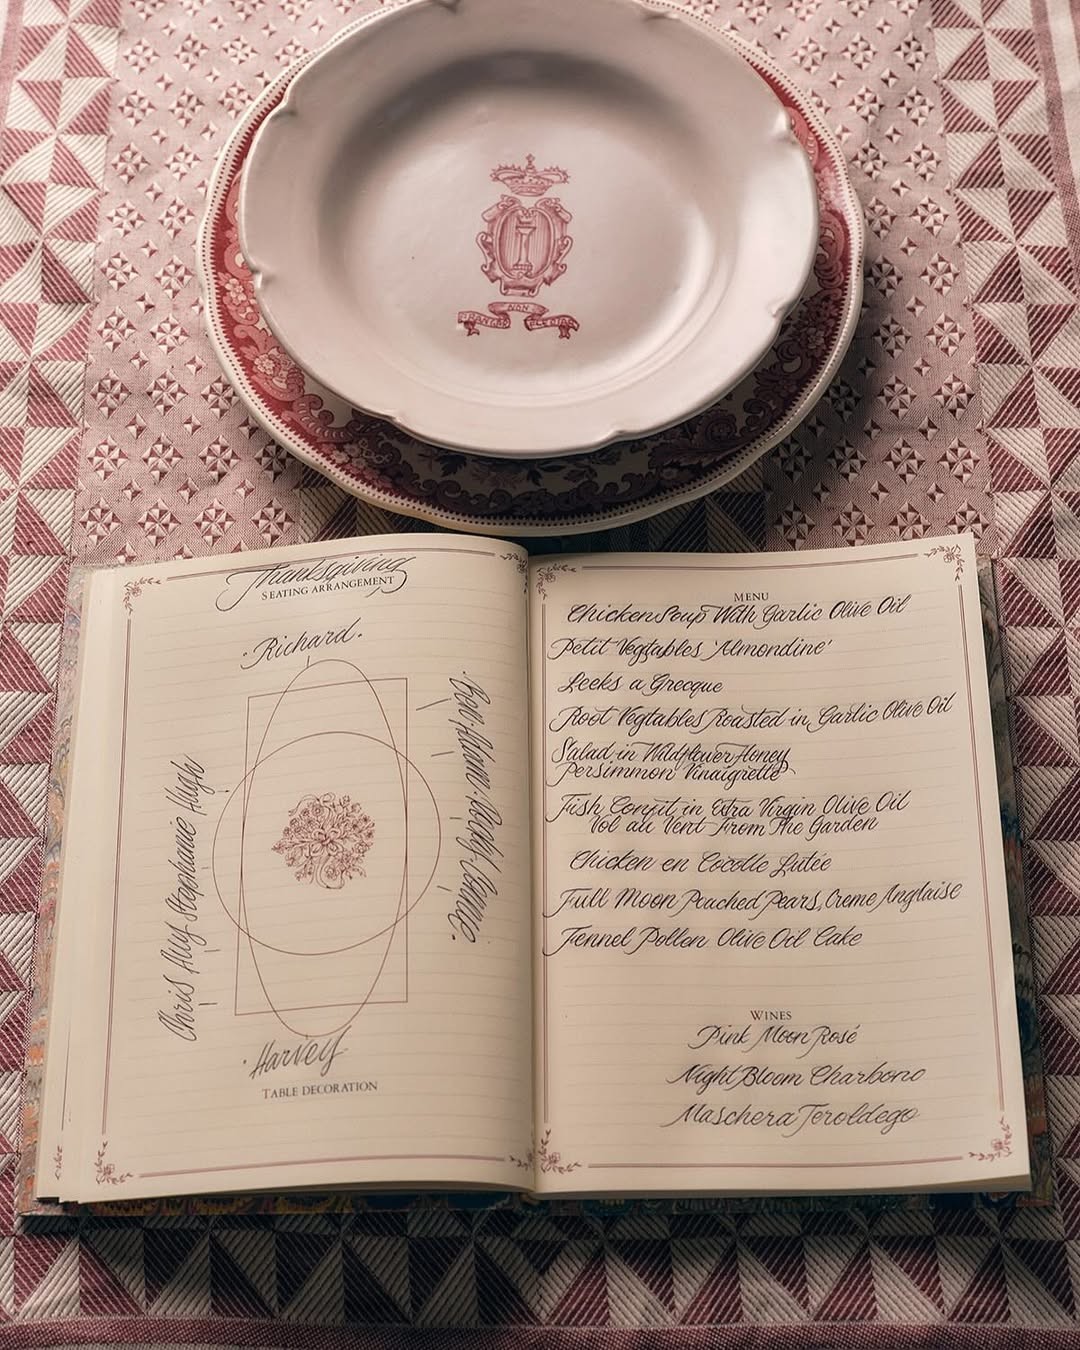 NON
FRANGAR FLECTAR
Thanksgiving
SEATING ARRANGEMENT
Richard.
Chris Ally Stephanie Hugh
Adam Polly
Harvey
TABLE DECORATION
MENU
Chicken Soup With Garlic Olive Oil
Petit Vegtables 'Almondine'
Leeks a Grecque
Root Vegtables Roasted in Garlic Olive Oil
Salad in Wildflower Honey
Persimmon Vinaigrette
Fish Confit in Extra Virgin Olive Oil
Vol au Vent From The Garden
Chicken en Cocotte Lutée
Full Moon Poached Pears, Creme Anglaise
Fennel Pollen Olive Oil Cake
WINES
Pink Moon Rosé
Night Bloom Charbono
Maschera Teroldego